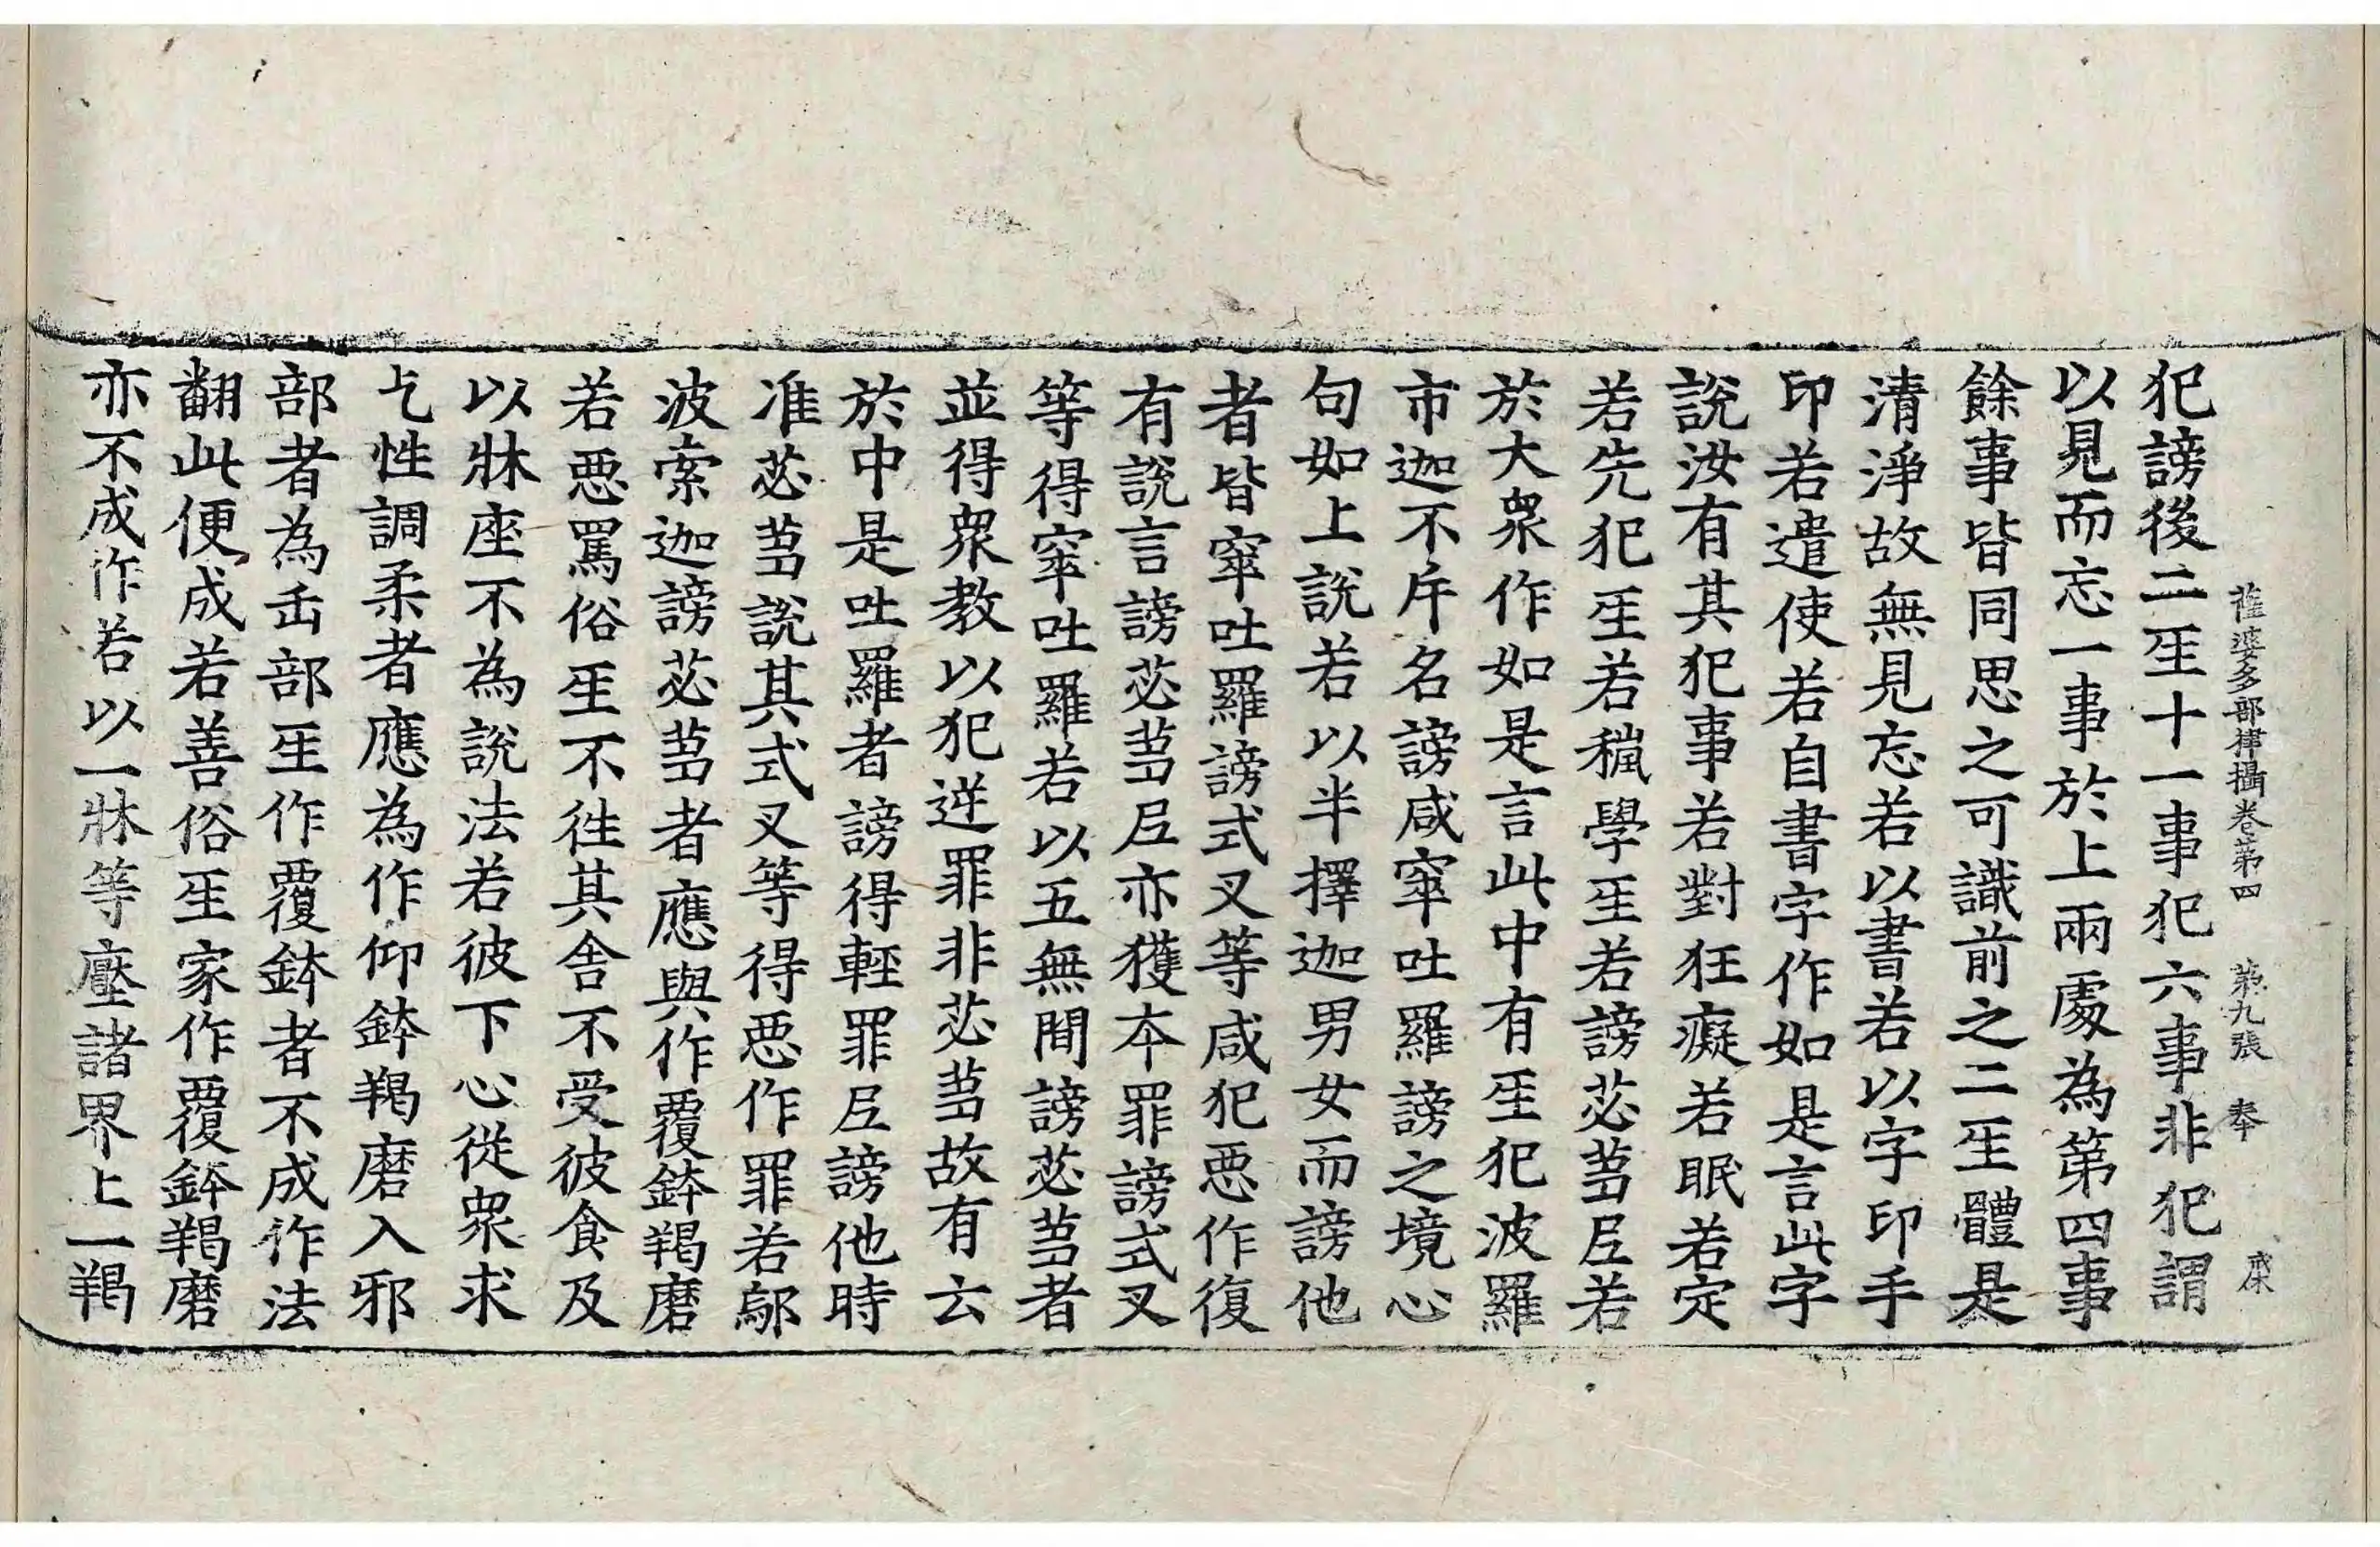 薩婆多部律攝卷第四 第九張 奉
犯謗後二𤯔十一事犯六事非犯謂
以見而忘一事於上兩處為第四事
餘事皆同思之可識前之二𤯔體是
清淨故無見忘若以書若以字印手
印若遣使若自書字作如是言此字
說汝有其犯事若對狂癡若眠若定
若先犯𤯔若穐學𤯔若謗苾芻尼若
於大衆作如是言此中有𤯔犯波羅
市迦不斥名謗咸窣吐羅謗之境心
句如上說若以半擇迦男女而謗他
者皆窣吐羅謗式叉等咸犯惡作復
有說言謗苾芻尼亦獲本罪謗式叉
等得窣吐羅若以五無間謗苾芻者
並得衆教以犯逆罪非苾芻故有云
於中是吐羅者謗得輕罪尼謗他時
准苾芻說其式叉等得惡作罪若鄔
波索迦謗苾芻者應與作覆鉢羯磨
若惡罵俗𤯔不往其舍不受彼食及
以牀座不為說法若彼下心從衆求
乞性調柔者應為作仰鉢羯磨入邪
部者為缶部𤯔作覆鉢者不成作法
翻此便成若善俗𤯔家作覆鉢羯磨
亦不成作若以一牀等壓諸界上一羯